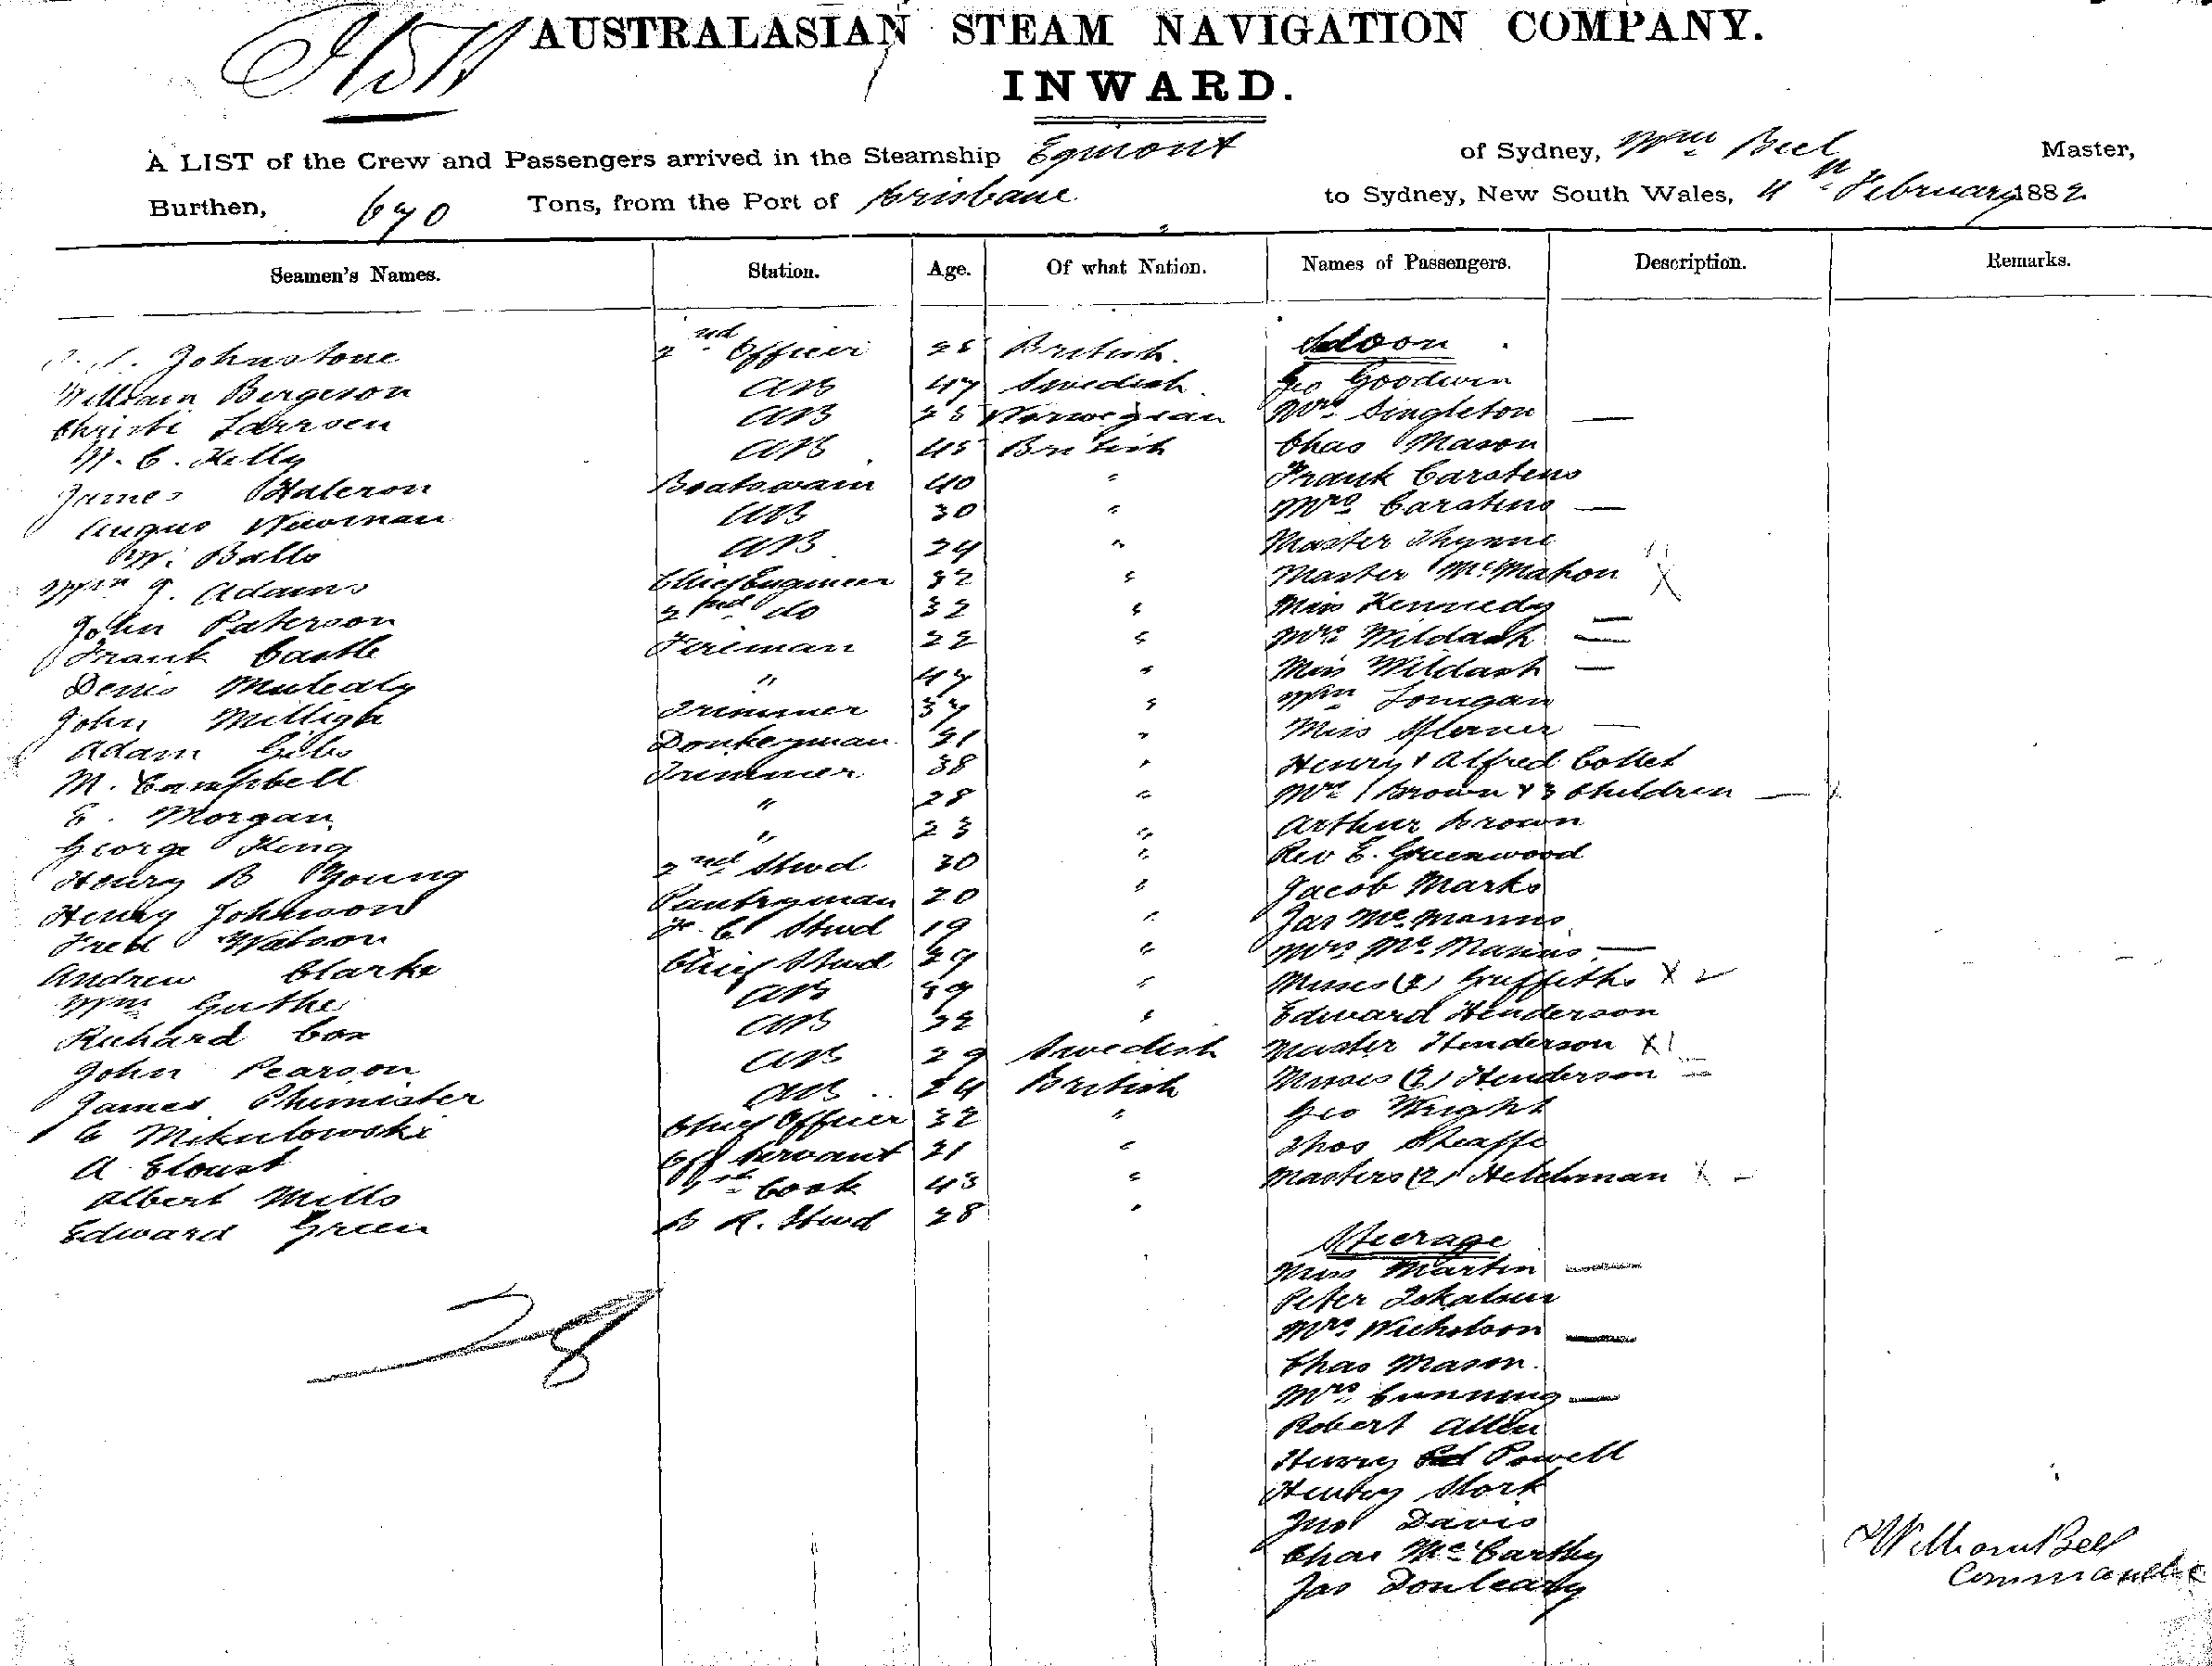 AUSTRALASIAN STEAM NAVIGATION COMPANY.
INWARD.
A LIST of the Crew and Passengers arrived in the Steamship Egmont of Sydney, Wm Bell Master,
Burthen, 670 Tons, from the Port of Brisbane to Sydney, New South Wales, 4th February 1882
Seamen's Names. Station. Age. Of what Nation. Names of Passengers. Description. Remarks.
Johnstone 2nd Officer British. Saloon
William Bergeson AB 47 Swedish Geo Goodwin
Christi Larrsen AB 25 Norwegian Mrs Singleton —
M. C. Kelly AB 45 British Chas Mason
James Boatswain 40 " Frank Carstens
Angus Newman AB 30 " Mrs Carstens —
W. Balls AB 24 " Master Thynne
Wm J. Adams Chief Engineer 32 " Master McMahon X
John Paterson 2nd do 32 " Miss Kennedy —
Frank Castle Fireman 22 " Mrs Wildash —
Denis Mulcaly " 47 " Miss Wildash —
John Trimmer 37 " Wm Lonigan
Adam Giles Donkeyman 21 " Miss —
M. Campbell Trimmer 38 " Henry & Alfred Collet
E. Morgan " 28 " Mrs Brown & 3 Children — X
George King " 23 " Arthur Brown
Henry B Young 2nd Stwd 30 " Rev E. Greenwood
Henry Johnson Pantryman 20 " Jacob Marks
Fred Watson F. C. Stwd 19 " Jas McManus
Andrew Clarke Chief Stwd 29 " Mrs McManus —
Wm Guthe AB " Misses (2) Griffiths X 2
Richard Cox AB 32 " Edward Henderson
John Pearson AB 29 Swedish Master Henderson X1
James Phimister AB 24 British Misses (2) Henderson =
C Mikulowski Chief Officer 32 " Geo Wright
A Off Servant 21 " Thos Sheaffe
Albert Mills Cook 43 " Masters (2) X
Edward Green B R. Stwd 28 "
Steerage
Miss Martin —
Peter
28
Mrs Nicholson —
Chas Mason.
Mrs Cunning —
Robert Allen
Henry Powell
Henry Stork
Jno Davis
Chas McCarthy
Jas Donleavy
William Bell
Commander